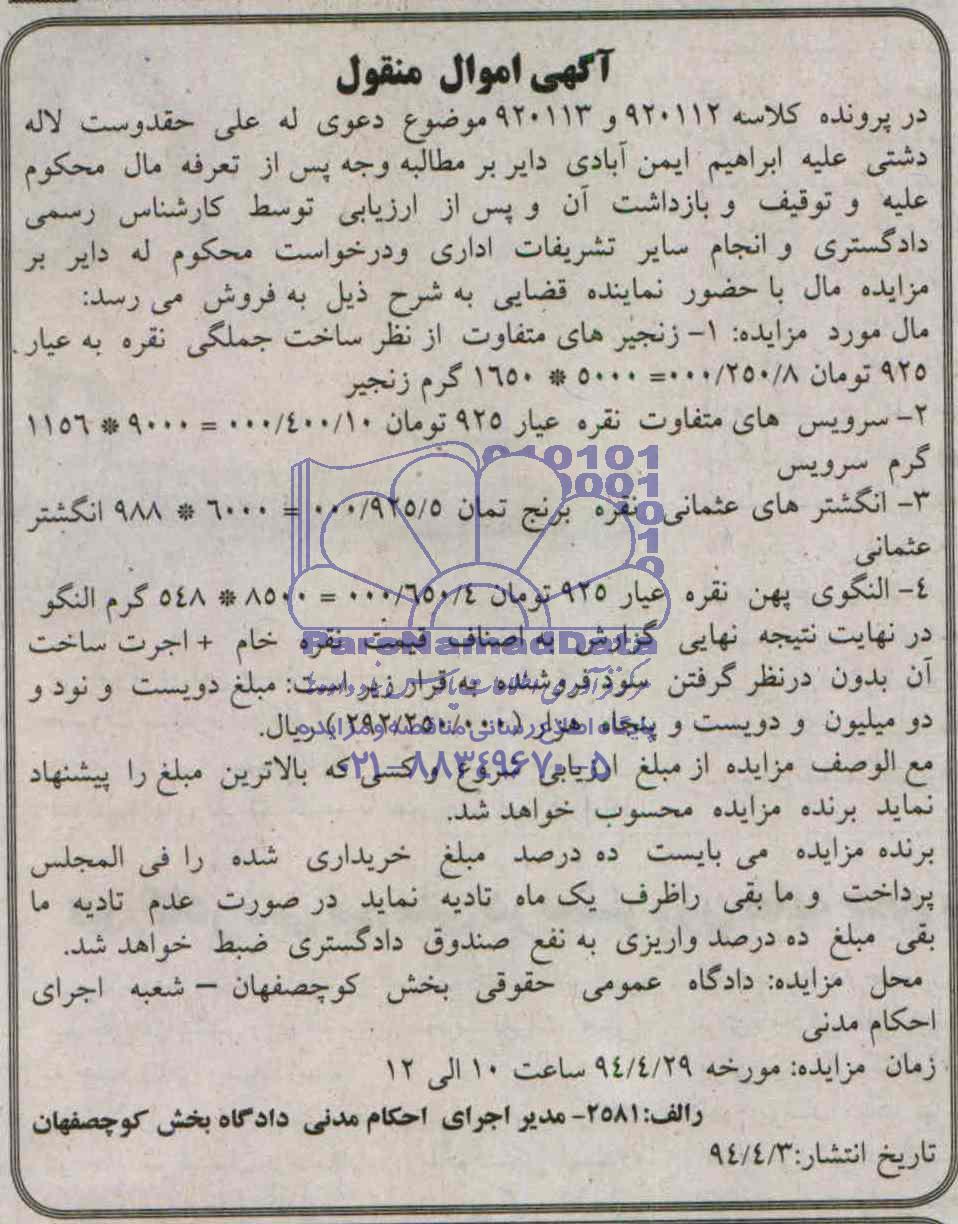 آگهی اموال منقول
در پرونده کلاسه ۹۲۰۱۱۲ و ۹۲۰۱۱۳ موضوع دعوی له علی حقدوست لاله
دشتی علیه ابراهیم ایمن آبادی دایر بر مطالبه وجه پس از تعرفه مال محکوم
علیه و توقیف و بازداشت آن و پس از ارزیابی توسط کارشناس رسمی
دادگستری و انجام سایر تشریفات اداری ودرخواست محکوم له دایر بر
مزایده مال با حضور نماینده قضایی به شرح ذیل به فروش می رسد:
مال مورد مزایده: ۱- زنجیر های متفاوت از نظر ساخت جملگی نقره به عیار
۹۲۵ تومان ۰۰۰/۲۵۰/۸= ۵۰۰۰ * ۱۶۵۰ گرم زنجیر
۲- سرویس های متفاوت نقره عیار ۹۲۵ تومان ۰۰۰/٤۰۰/۱۰ = ۹۰۰۰ * ۱۱۵٦
گرم سرویس
۳- انگشتر های عثمانی نقره برنج تمان ۰۰۰/۹۲۵/۵ = ٦۰۰۰ * ۹۸۸ انگشتر
عثمانی
٤- النگوی پهن نقره عیار ۹۲۵ تومان ۰۰۰/٦۵۰/٤ = ۸۵۰۰ * ۵٤۸ گرم النگو
در نهایت نتیجه نهایی گزارش به اصناف قیمت نقره خام + اجرت ساخت
آن بدون درنظر گرفتن سود فروشنده به قرار زیر است: مبلغ دویست و نود و
دو میلیون و دویست و پنجاه هزار (۲۹۲/۲۵۰/۰۰۰) ریال.
مع الوصف مزایده از مبلغ ارزیابی شروع و کسی که بالاترین مبلغ را پیشنهاد
نماید برنده مزایده محسوب خواهد شد.
برنده مزایده می بایست ده درصد مبلغ خریداری شده را فی المجلس
پرداخت و ما بقی راظرف یک ماه تادیه نماید در صورت عدم تادیه ما
بقی مبلغ ده درصد واریزی به نفع صندوق دادگستری ضبط خواهد شد.
محل مزایده: دادگاه عمومی حقوقی بخش کوچصفهان – شعبه اجرای
احکام مدنی
زمان مزایده: مورخه ۹٤/٤/۲۹ ساعت ۱۰ الی ۱۲
رالف: ۲۵۸۱- مدیر اجرای احکام مدنی دادگاه بخش کوچصفهان
تاریخ انتشار: ۹٤/٤/۳
010101
0001
ParsNamadData
پایگاه اطلاع رسانی مناقصه و مزایده
۰۲۱-۸۸۳۴۹۶۷۰-۵